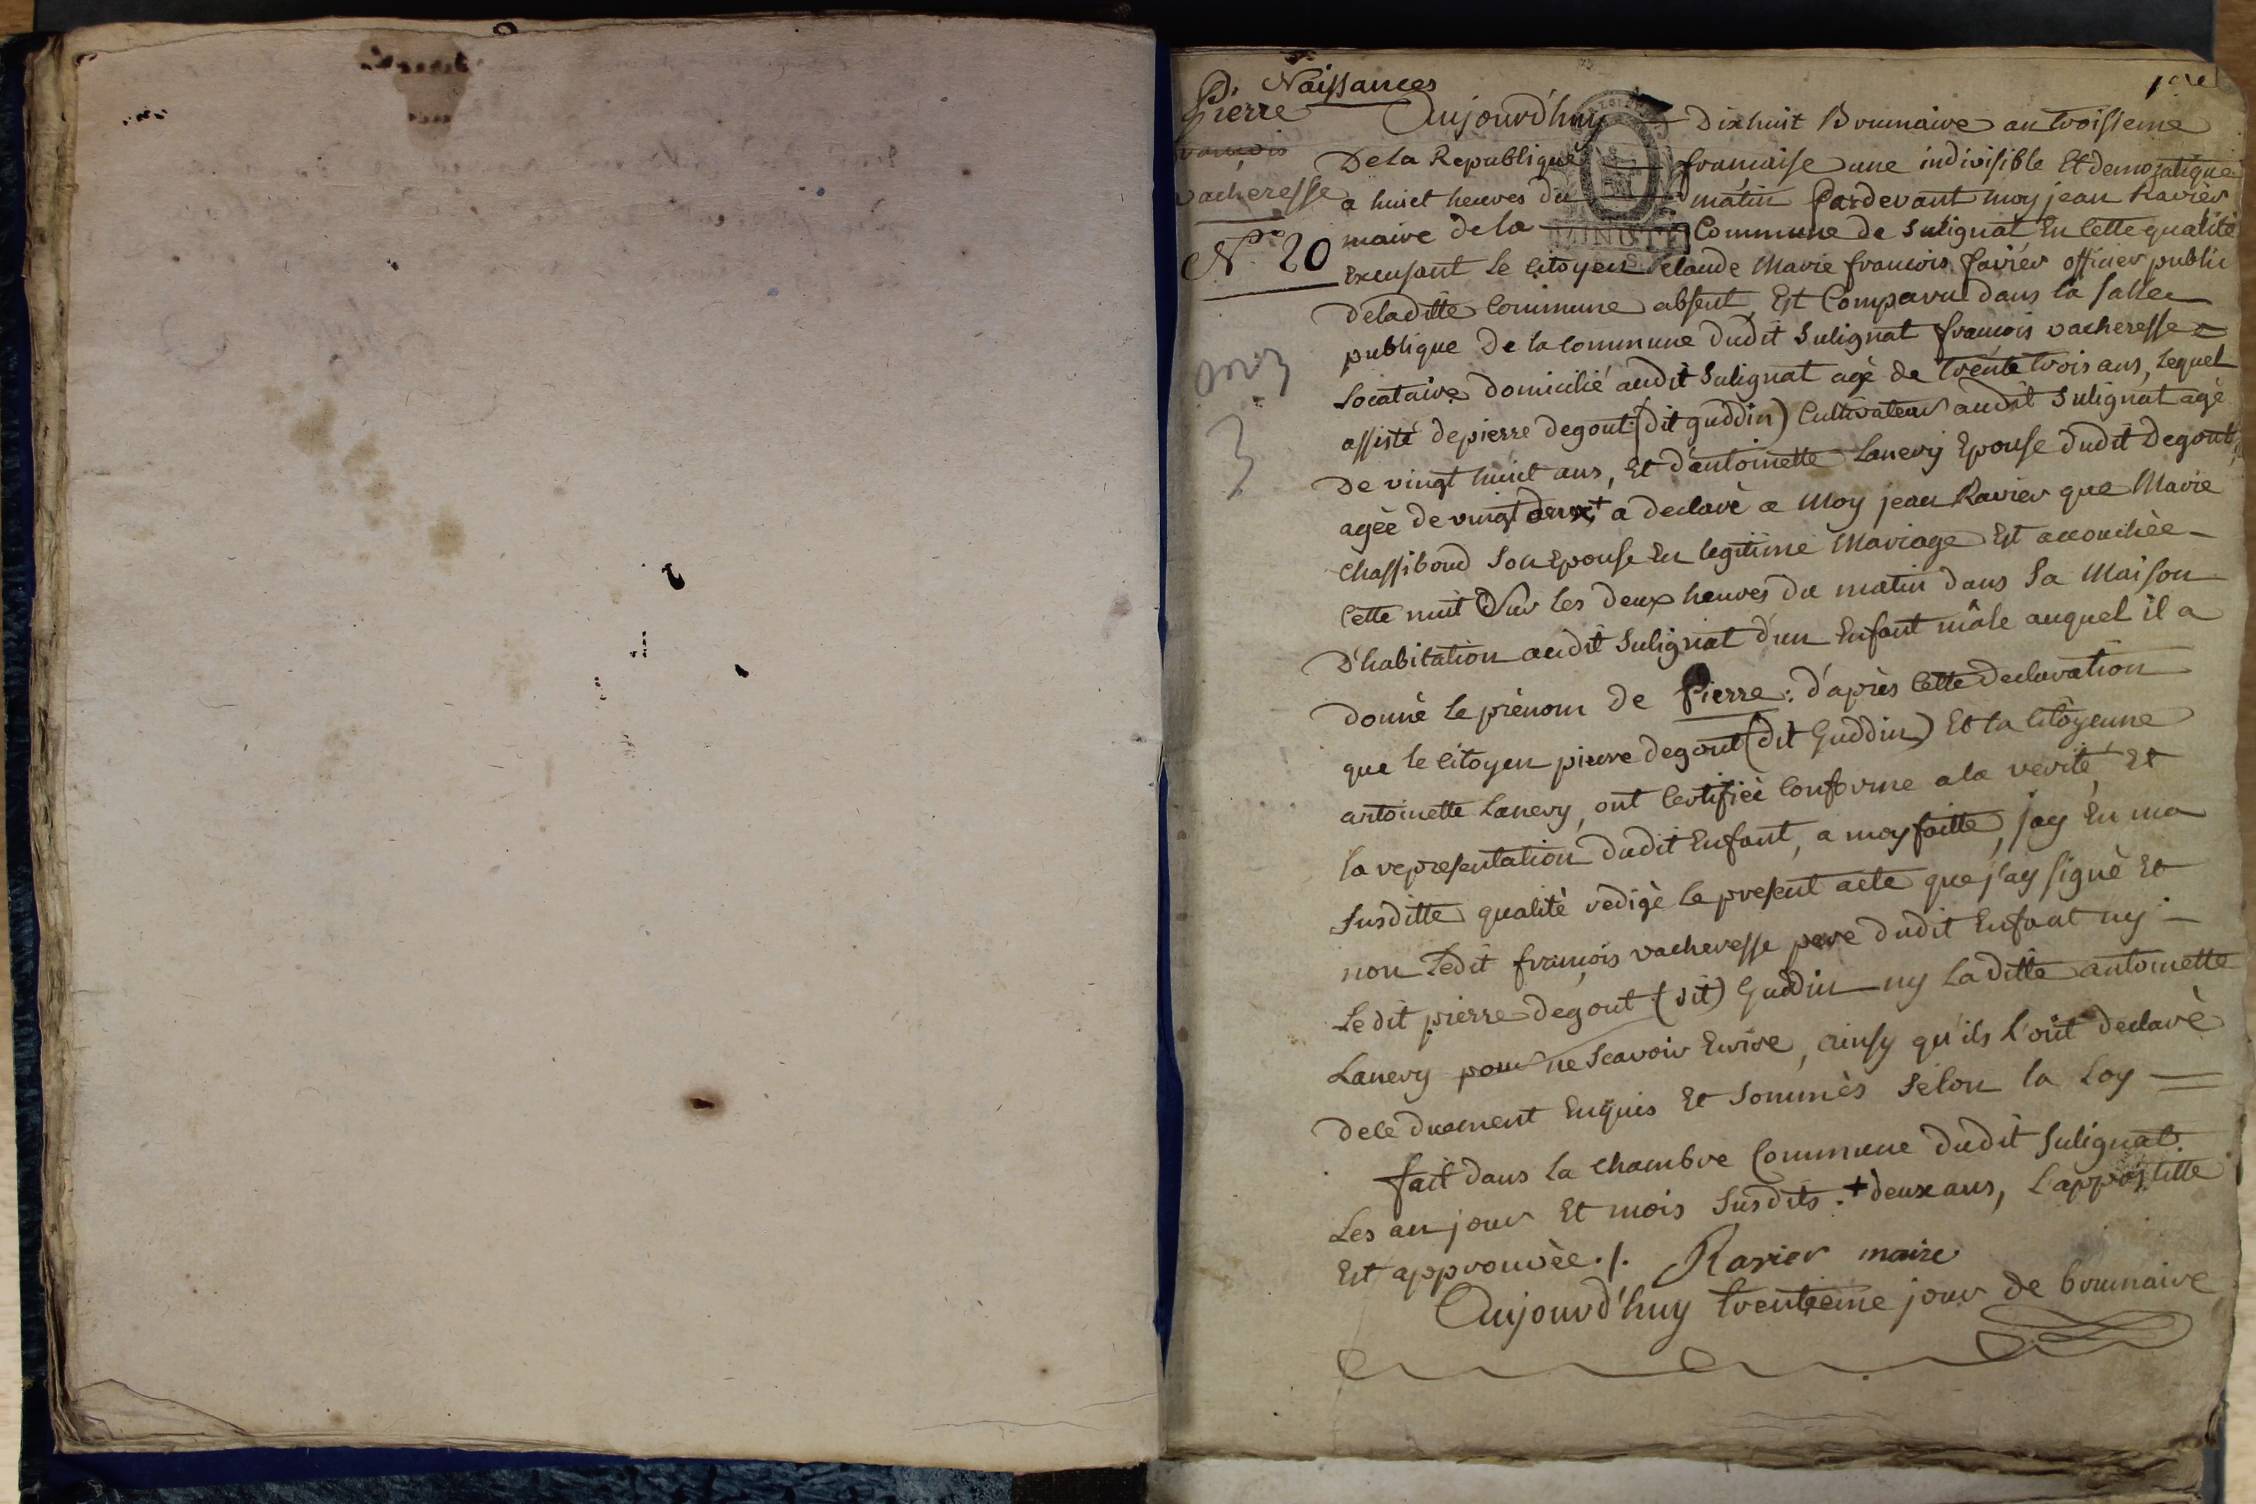 Naissances
Pierre
françois
vacheresse
N.º 20
an 3
3
Aujourd'huy Dixhuit Brumaire an troisieme
De la Republique francaise une indivisible Et democratique
a huict heures du matin Pardevant moy jean Ravier
maire de la Commune de Sulignat En Cette qualité
MINUTE
Excusant Le Citoyen Claude Marie francois favier officier public
de laditte Commune absent, Est Comparu dans la salle
publique De la Commune dudit Sulignat francois vacheresse
Locataire domicilié audit Sulignat agé de trente trois ans, Lequel
assisté de pierre degout (dit guddin) Cultivateur audit Sulignat agé
De vingt huict ans, Et d'antoinette Lanery Epouse dudit Degout,
agèe de vingt deux + a declaré a Moy jean Ravier que Marie
Chassiboud Son Epouse En legitime Mariage Est accouchèe
Cette nuit Sur les deux heures du matin dans Sa Maison
D'habitation audit Sulignat d'un Enfant mâle auquel il a
donné Le prènom De Pierre : d'après Cette declaration
que le Citoyen pierre degout (dit Guddin) Et la Citoyenne
antoinette Lanery, ont Certifièe Conforme a la verité, Et
la representation dudit Enfant, a moy faitte, jay En ma
Susditte qualité rèdigè Le present acte que j'ay signé Et
non Ledit françois vacheresse pere dudit Enfant ny
Ledit pierre degout (dit) Guddin ny Laditte antoinette
Lanery pour ne Scavoir Ecrire, ainsy qu'ils L'ont declaré
De ce duement Enquis Et Sommès Selon la Loy
fait dans la Chambre Commune dudit Sulignat
Les an jour Et mois Susdits : + deux ans, L'appostille
Est approuvèe ./. Ravier maire
Aujourd'huy trentieme jour de brumaire